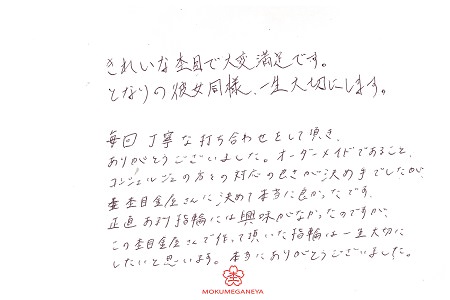 きれいな杢目で大変満足です。
となりの彼女同様、一生大切にします。
毎回丁寧な打ち合わせをして頂き、
ありがとうございました。オーダーメイドであること、
コンシェルジュの方々の対応の良さが決め手でしたが、
杢目金屋さんに決めて本当に良かったです。
正直あまり指輪には興味がなかったのですが、
この杢目金屋さんで作って頂いた指輪は一生大切に
したいと思います。本当にありがとうございました。
MOKUMEGANEYA